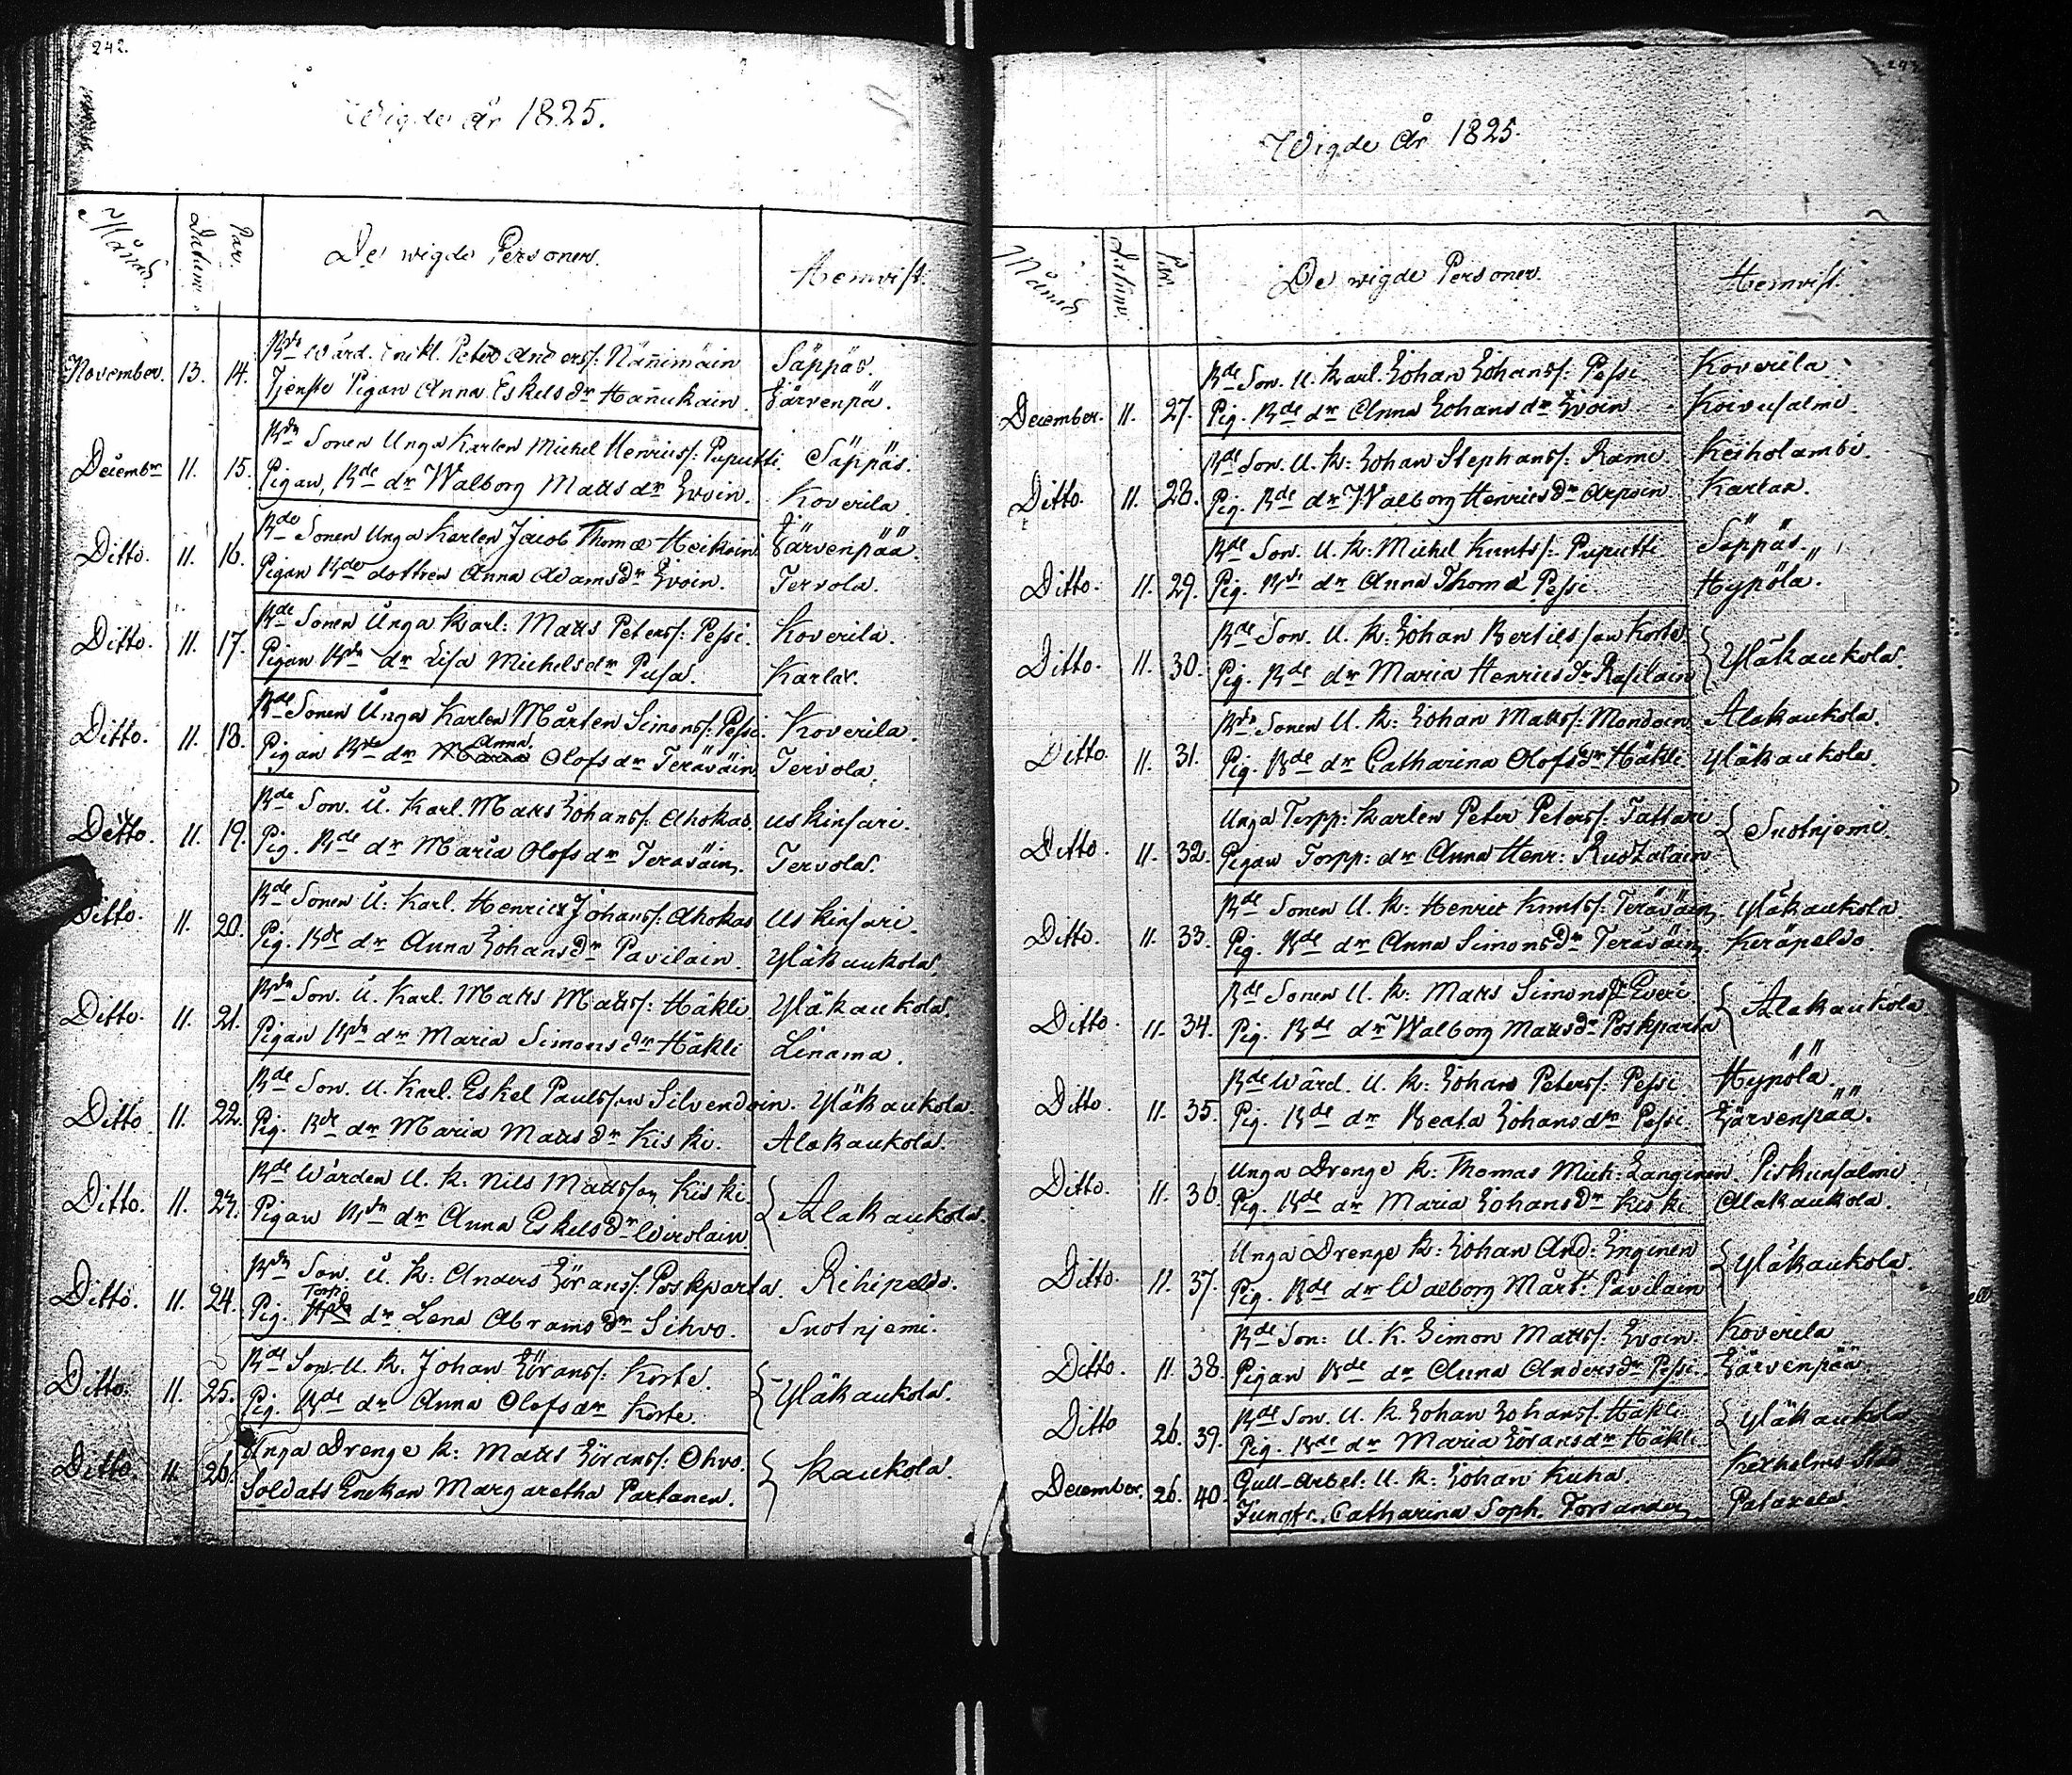 242.
Wigde år 1825.
Månad. Datum. Par. De wigde Personer. Hemvist.
November. 13. 14. Bde Wärd. Enkl. Peter Anderss: Näñimäin Säppäs.
Tjenste Pigan Anna Eskelsdr Hañukain. Järvenpä.
Decembr 11. 15. Bde Sonen Unga Karlen Michel Henricss: Puputti Säppäs.
Pigan, Bde dr Walborg Mattsdr Ewoin. Koverila.
Ditto. 11. 16. Bde Sonen Unga Karlen Jacob Thomæ Heikoin Järvenpää.
Pigan Bde dottren Anna Adamsdr Ewoin. Tervola.
Ditto. 11. 17. Bde Sonen Unga Karl: Matts Peterss: Pessi. Koverila.
Pigan Bde dr Lisa Michelsdr Pusa. Karlax.
Ditto. 11. 18. Bde Sonen Unga Karlen Mårten Simonss: Pessi. Koverila.
Pigan Bde dr Anna Olofsdr Teräväin Tervola.
Ditto. 11. 19. Bde Son. U. Karl. Matts Johanss: Ahokas. Uskinsari.
Pig. Bde dr Maria Olofsdr Teräväin. Tervola.
Ditto. 11. 20. Bde Sonen U. Karl. Henrick Johanss: Ahokas Uskinsari.
Pig. Bde dr Anna Johansdr Pavilain. Yläkaukola.
Ditto. 11. 21. Bde Son. U. Karl. Matts Mattss: Häkli Yläkaukola.
Pigan Bde dr Maria Simonsdr Häkli Linama.
Ditto. 11. 22. Bde Son. U. Karl. Eskel Paulsson Silvendoin. Yläkaukola.
Pig. Bde dr Maria Mattsdr Kiski. Alakaukola.
Ditto. 11. 23. Bde Wärden U. K: Nils Mattsson Kiski.
Pigan Bde dr Anna Eskelsdr Wirolain } Alakaukola.
Ditto. 11. 24. Bde Son. U. K: Anders Jöranss: Poskparta. Rihipeldo.
Pig. Torp. dr Lena Abramsdr Sihvo. Suotnjemi.
Ditto. 11. 25. Bde Son. U. K. Johan Jöranss: Korte.
Pig. Bde dr Anna Olofsdr Korte. } Yläkaukola.
Ditto. 11. 26. Unga Drenge K: Matts Jöranss: Ohvo.
Soldats Enekan Margaretha Partanen. } Kaukola.
243
Wigde År 1825.
Månad. Datum. Par. De wigde Personer. Hemvist.
December. 11. 27. Bde Son. U. Karl. Johan Johanss: Pessi Koverila.
Pig. Bde dr Anna Johansdr Ewoin Koivusalmi.
Ditto. 11. 28. Bde Son. U. K: Johan Stephanss: Rami. Keiholambi.
Pig. Bde dr Walborg Henricsdr Arpoin Karlax.
Ditto. 11. 29. Bde Son. U. K: Michel Knutss: Puputti Säppäs.
Pig. Bde dr Anna Thomæ Pessi. Hypölä.
Ditto. 11. 30. Bde Son. U. K: Johan Bertilsson Korte.
Pig. Bde dr Maria Henricsdr Rasilain } Yläkaukola.
Ditto. 11. 31. Bde Sonen U. K: Johan Mattss: Mondoin Alakaukola.
Pig. Bde dr Catharina Olofsdr Häkli Yläkaukola.
Ditto. 11. 32. Unga Torpp: Karlen Peter Peterss: Tattari
Pigan Torpp: dr Anna Henr: } Suotnjemi.
Ditto. 11. 33. Bde Sonen U. K: Henric Knutss: Teräväin. Yläkaukola
Pig. Bde dr Anna Simonsdr Teräväin. Keräpeldo.
Ditto. 11. 34. Bde Sonen U. K: Matts Simonss: Everi
Pig. Bde dr Walborg Mattsdr Poskparta } Alakaukola.
Ditto. 11. 35. Bde Wärd. U. K: Johan Peterss: Pessi Hypölä.
Pig. Bde dr Beata Johansdr Pessi. Järvenpää.
Ditto. 11. 36. Unga Drenge K: Thomas Mich: Langinen. Piskunsalmi.
Pig. Bde dr Maria Johansdr Kiski Alakaukola.
Ditto. 11. 37. Unga Drenge K: Johan And: Enginen
Pig. Bde dr Walborg Mårt: Pavilain } Yläkaukola.
Ditto. 11. 38. Bde Son: U. K. Simon Mattss: Ewoin. Koverila
Pigan Bde dr Anna Andersdr Pessi. Järvenpää.
Ditto 26. 39. Bde Son. U. K. Johan Johanss. Häkli.
Pig. Bde dr Maria Jöransdr Häkli. } Yläkaukola
December. 26. 40. Gull-Arbet. U. K: Johan Kuha. Kexholms Stad
Jungfr. Catharina Soph. Forsander